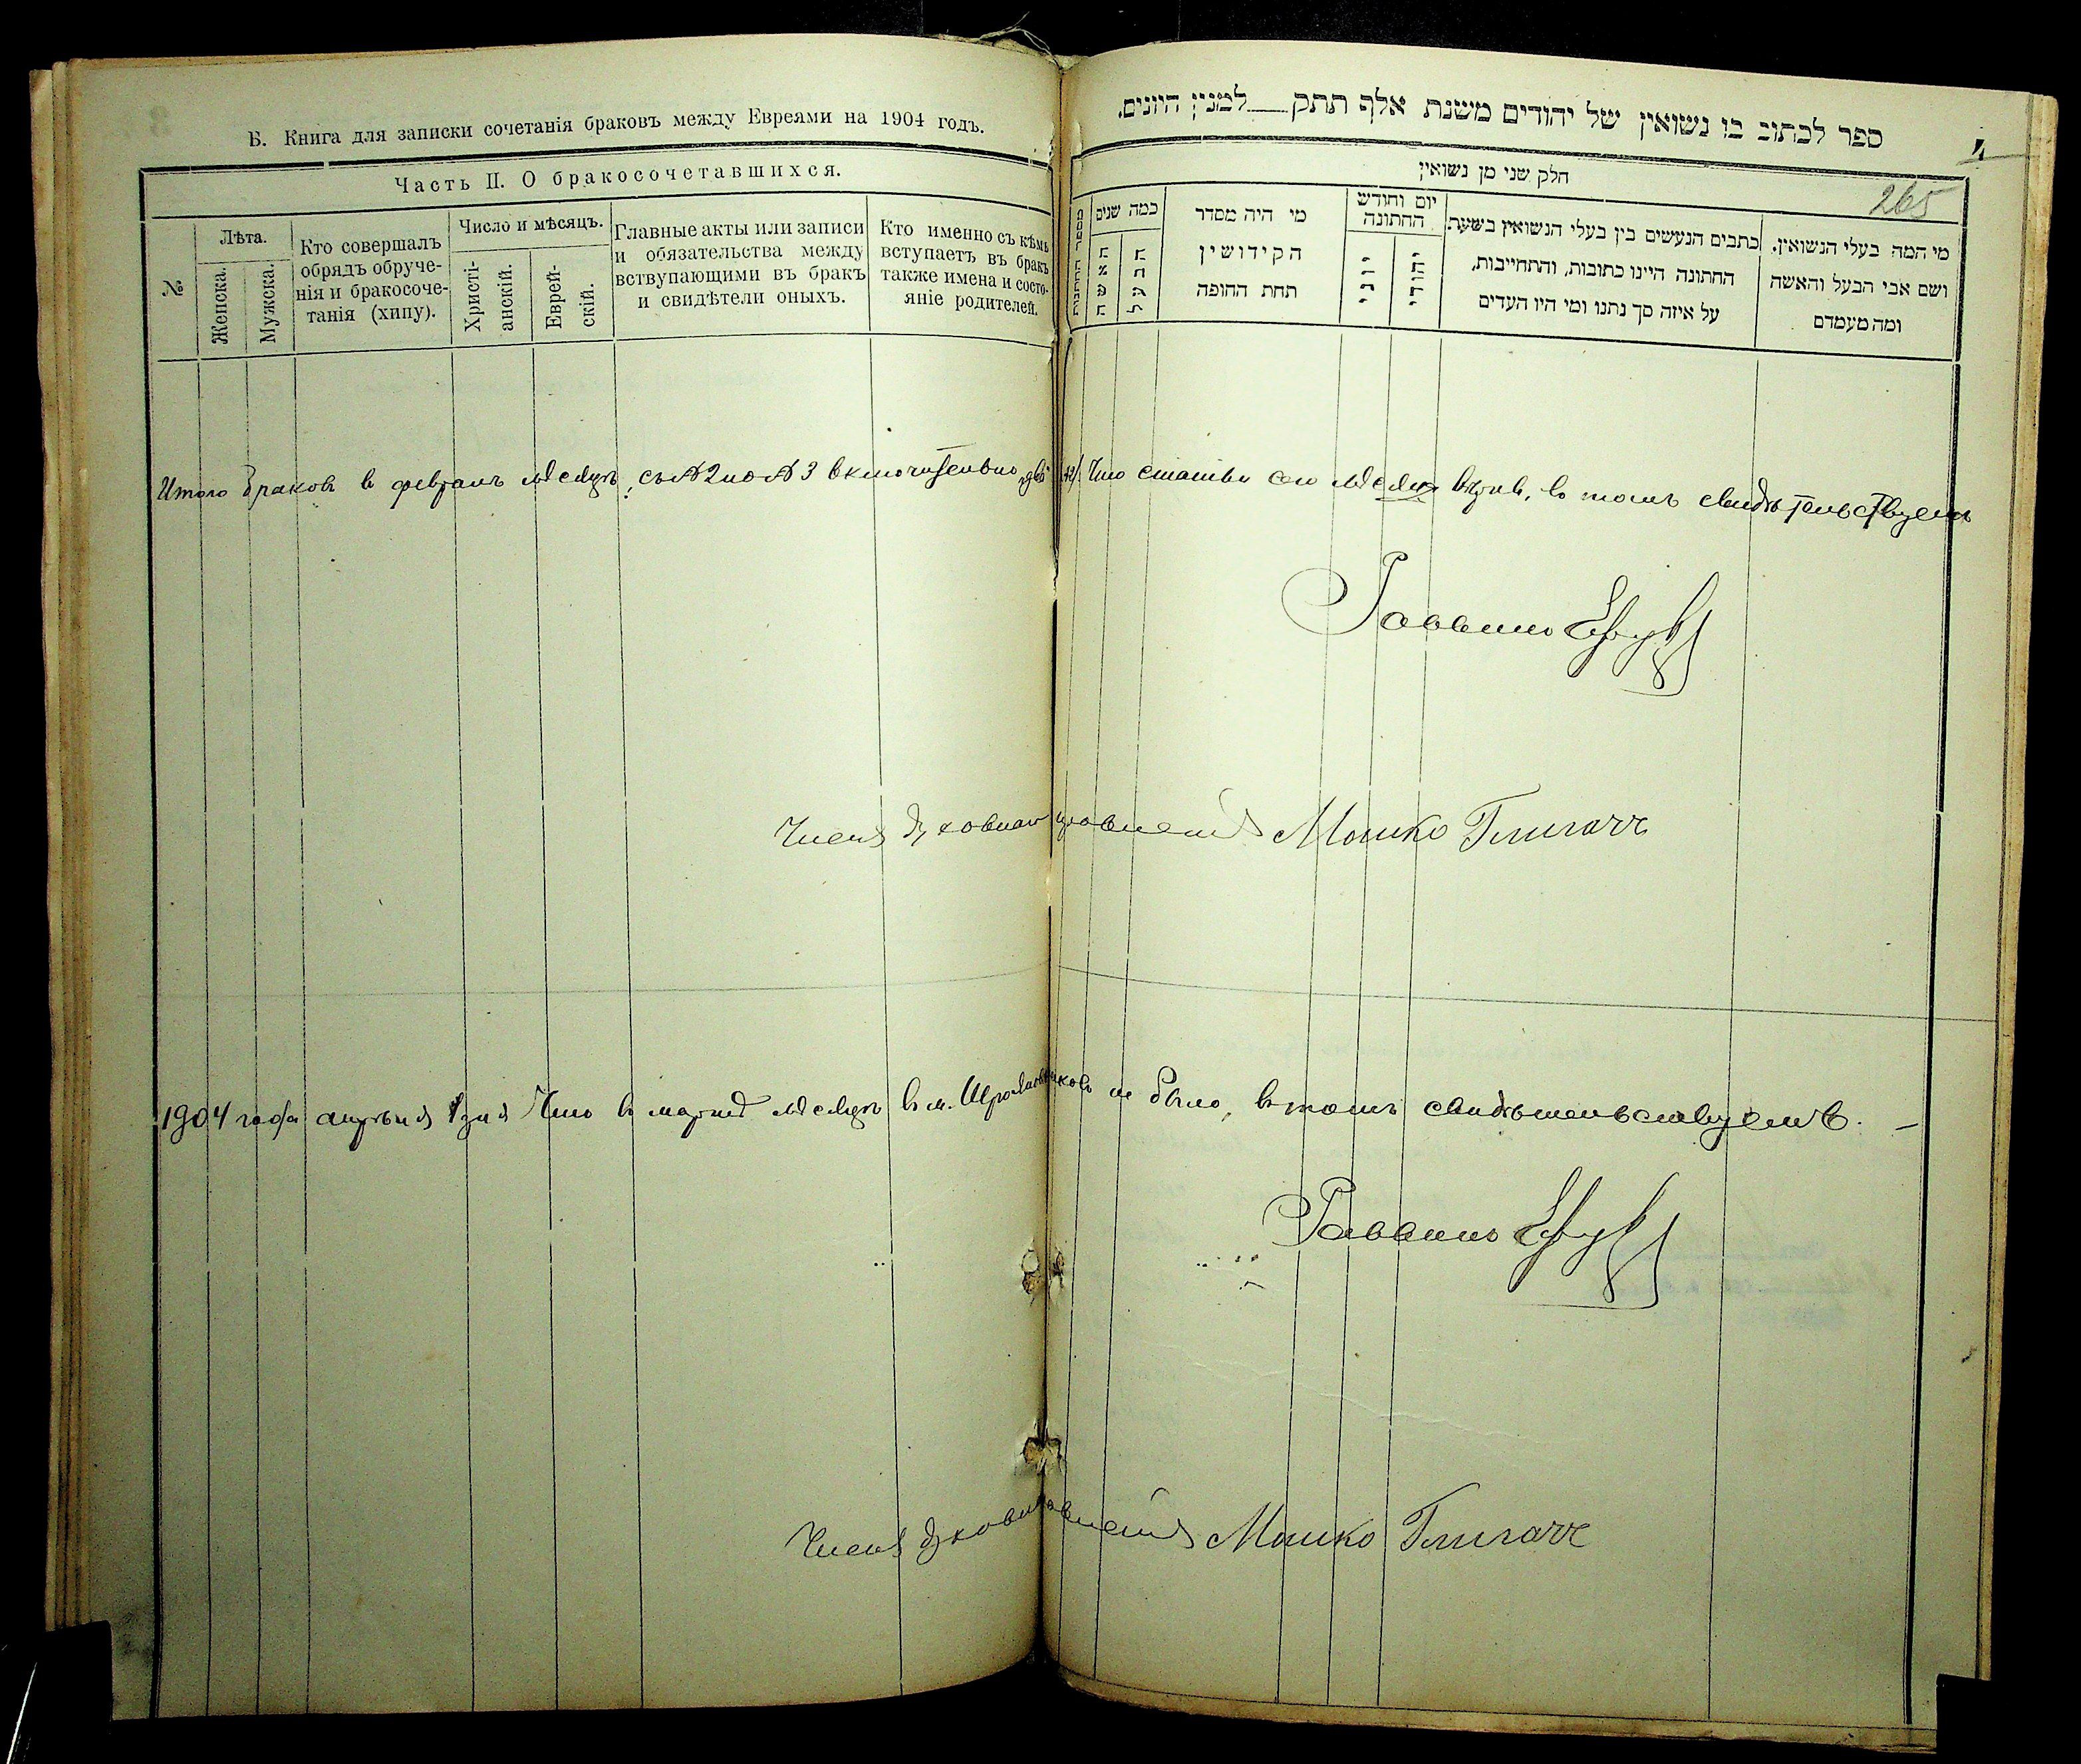 Б. Книга для записки сочетанія браковъ между Евреями на 1904 годъ.
Часть II. О бракосочетавшихся.
№
Лѣта.
Женска.
Мужска.
Кто совершалъ
обрядъ обруче-
нія и бракосоче-
танія (хипу).
Число и мѣсяцъ.
Христі-
анскій.
Еврей-
скій.
Главные акты или записи
и обязательства между
вствупающими въ бракъ
и свидѣтели оныхъ.
Кто именно съ кѣмъ
вступаетъ въ бракъ
также имена и состо-
яніе родителей.
ספר לכתוב בו נשואין של יהודים משנת אלף תתק למנין היונים.
4
חלק שני מן נשואין
265
מספר החתונות
כמה שנים
האשה
הבעל
מי היה מסדר
הקידושין
תחת החופה
יום וחודש
החתונה
יוני
יהודי
כתבים הנעשים בין בעלי הנשואין בשעת
החתונה היינו כתובות, והתחייבות,
על איזה סך נתנו ומי היו העדים
מי המה בעלי הנשואין.
ושם אבי הבעל והאשה
ומה מעמדם
Итого браковъ въ февралѣ мѣсяцѣ, съ №2 по №3 включительно два /2/. Что статьи сего мѣсяца вѣрны, въ томъ свидѣтельствуемъ
Раввинъ
Членъ духовнаго правленія Мошко Глигачъ
1904 года апрѣля 1 дня Что въ мартѣ мѣсяцѣ въ м. браковъ не было, въ томъ свидѣтельствуемъ. —
Раввинъ
Членъ духовн правленія Мошко Глигачъ